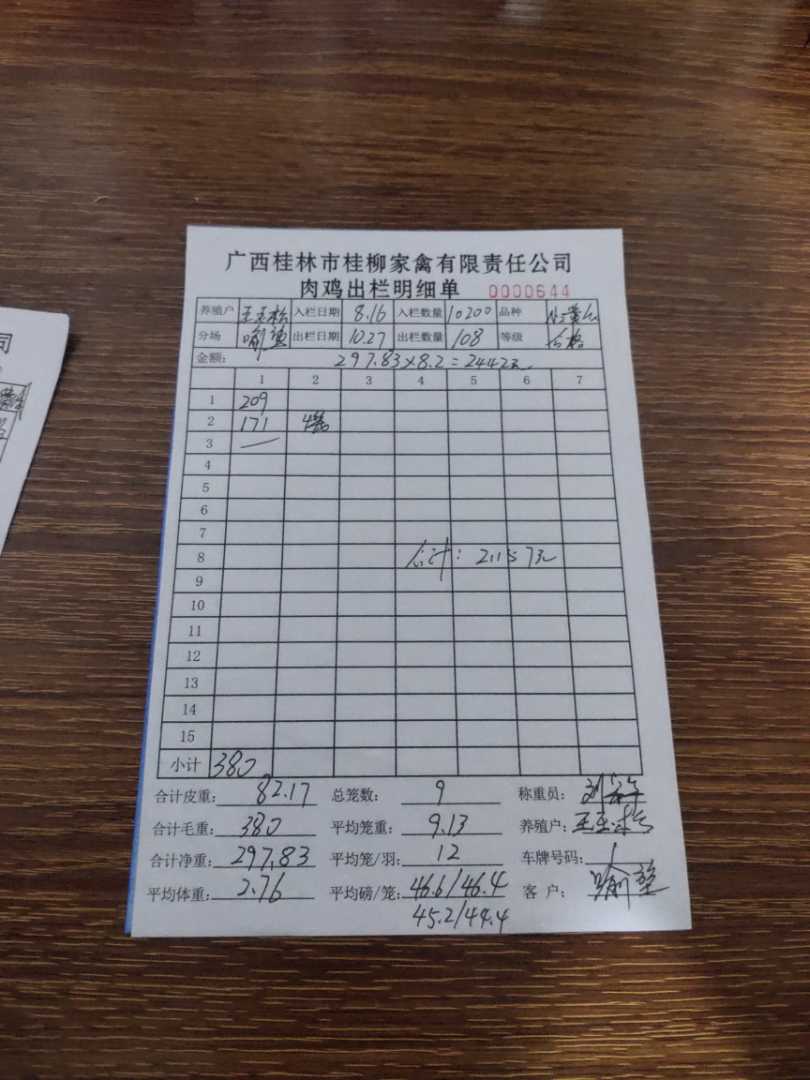 广西桂林市桂柳家禽有限责任公司
肉鸡出栏明细单 0000644
养殖户 入栏日期 8.16 入栏数量 10200 品种
分场 出栏日期 10.27 出栏数量 108 等级 合格
金额: 297.83×8.2=2442元
1 2 3 4 5 6 7
1 209
2 171
3
4
5
6
7
8 合计:
9
10
11
12
13
14
15
小计 380
合计皮重: 82.17 总笼数: 9 称重员:
合计毛重: 380 平均笼重: 9.13 养殖户:
合计净重: 297.83 平均笼/羽: 12 车牌号码:
平均体重: 2.76 平均磅/笼: 46.6/46.4 客户:
45.2/44.4
司